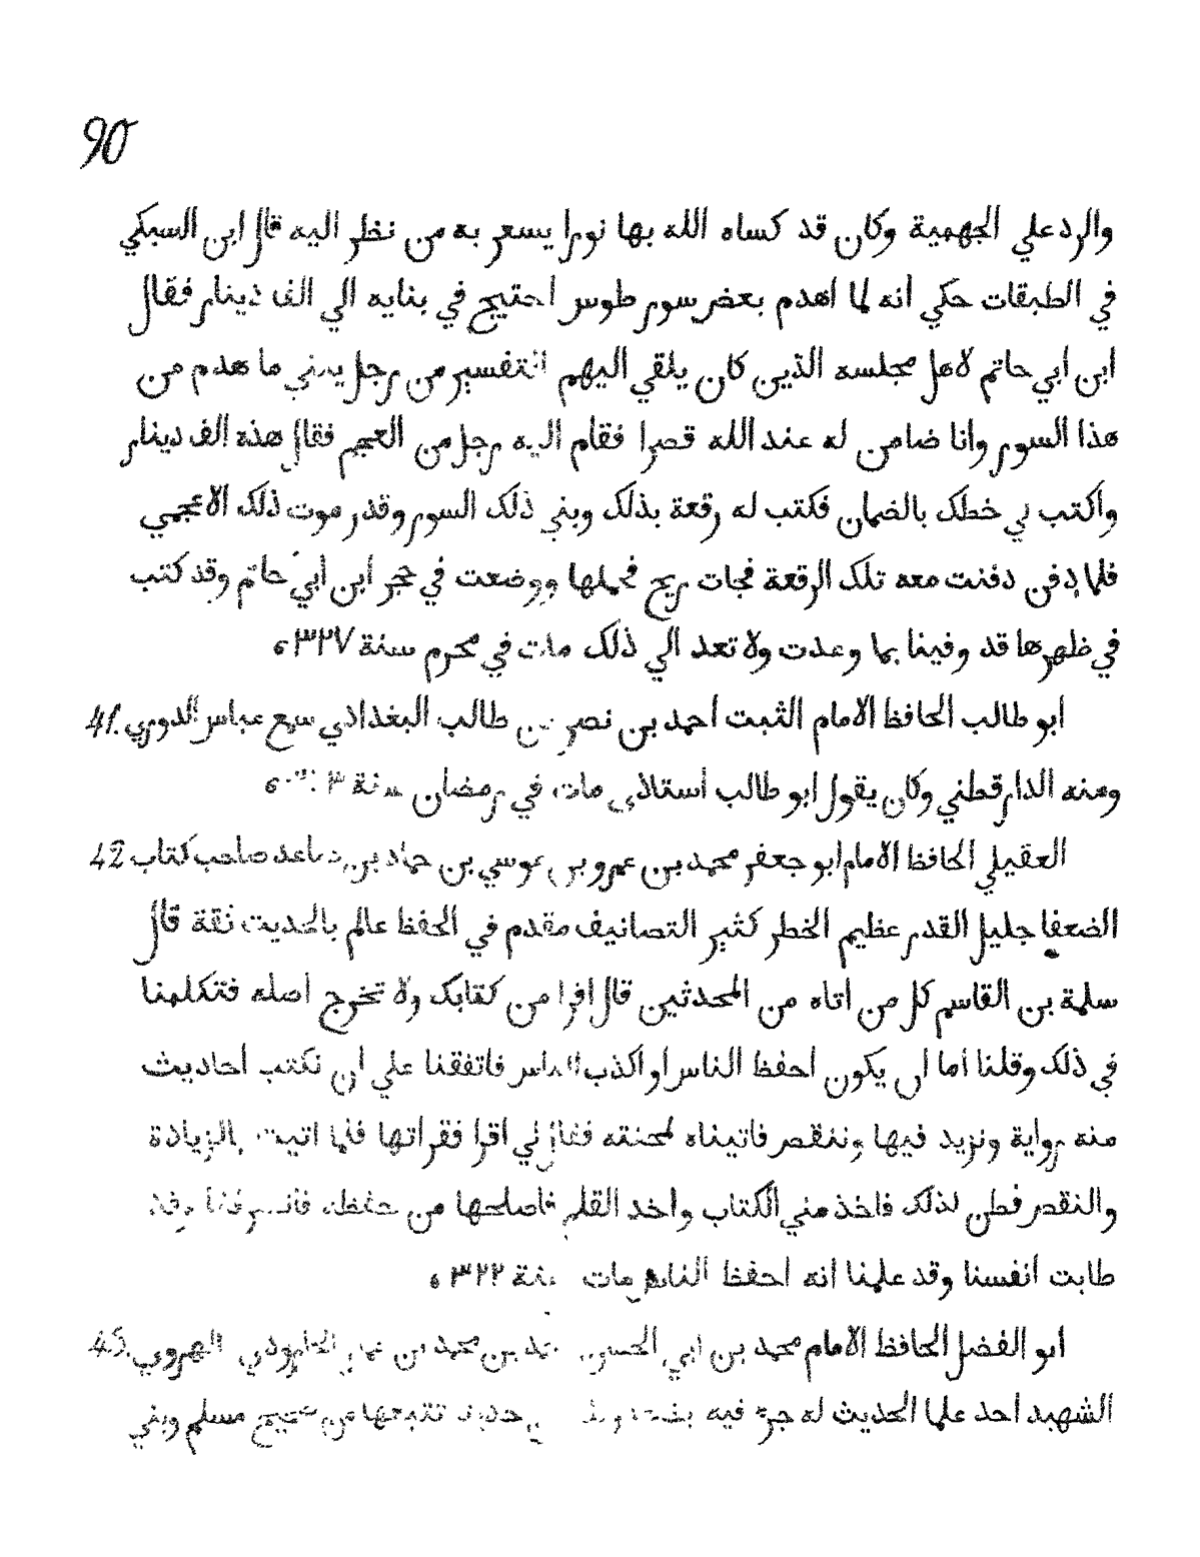 90
والرد علي الجهمية وكان قد كساه الله بها نورا يسعر به من نظر اليه قال ابن السبكي
في الطبقات حكي أنه لما اهدم بعض سور طوس احتيج في بنايه الي الف دينار فقال
ابن ابي حاتم لاهل مجلسه الذين كان يلقي اليهم التفسير من رجل يبني ما هدم من
هذا السور وانا ضامن له عند الله قصرا فقام اليه رجل من العجم فقال هذه الف دينار
واكتب لي خطك بالضمان فكتب له رقعة بذلك وبني ذلك السور وقدر موت ذلك الاعجمي
فلما دفن دفنت معه تلك الرقعة فجات ريح فحملها ووضعت في حجر أبن أبي حاتم وقد كتب
في ظهرها قد وفينا بما وعدت ولا تعد الي ذلك مات في محرم سنة ٣٢٧ ه
41. ابو طالب الحافظ الامام الثبت أحمد بن نصر بن طالب البغدادي سمع عباس الدوري
ومنه الدارقطني وكان يقول ابو طالب أستاذي مات في رمضان سنة
42 العقيلي الحافظ الامام ابو جعفر محمد بن عمرو بن موسي بن حماد بن صاعد صاحب كتاب
الضعفا جليل القدر عظيم الخطر كثير التصانيف مقدم في الحفظ عالم بالحديث ثقة قال
سلمة بن القاسم كل من اتاه من المحدثين قال اقرا من كتابك ولا تخرج اصله فتكلمنا
في ذلك وقلنا أما ان يكون أحفظ الناس او اكذب الناس فاتفقنا علي ان نكتب أحاديث
منه رواية ونزيد فيها وننقص فاتيناه لمحنته فقال لي اقرا فقراتها فلما اتيت بالزيادة
والنقص فطن لذلك فاخذ مني الكتاب واخد القلم فاصلحها من حفظه فانصرفنا وقد
طابت أنفسنا وقد علمنا انه أحفظ الناس مات سنة ٣٢٢ ه
43. ابو الفضل الحافظ الامام محمد بن ابي الحسين بن محمد بن عمار الجارودي الهروي
الشهيد احد علما الحديث له جزء فيه بضعة وثلاثين حديثا تتبعها من صحيح مسلم وبني